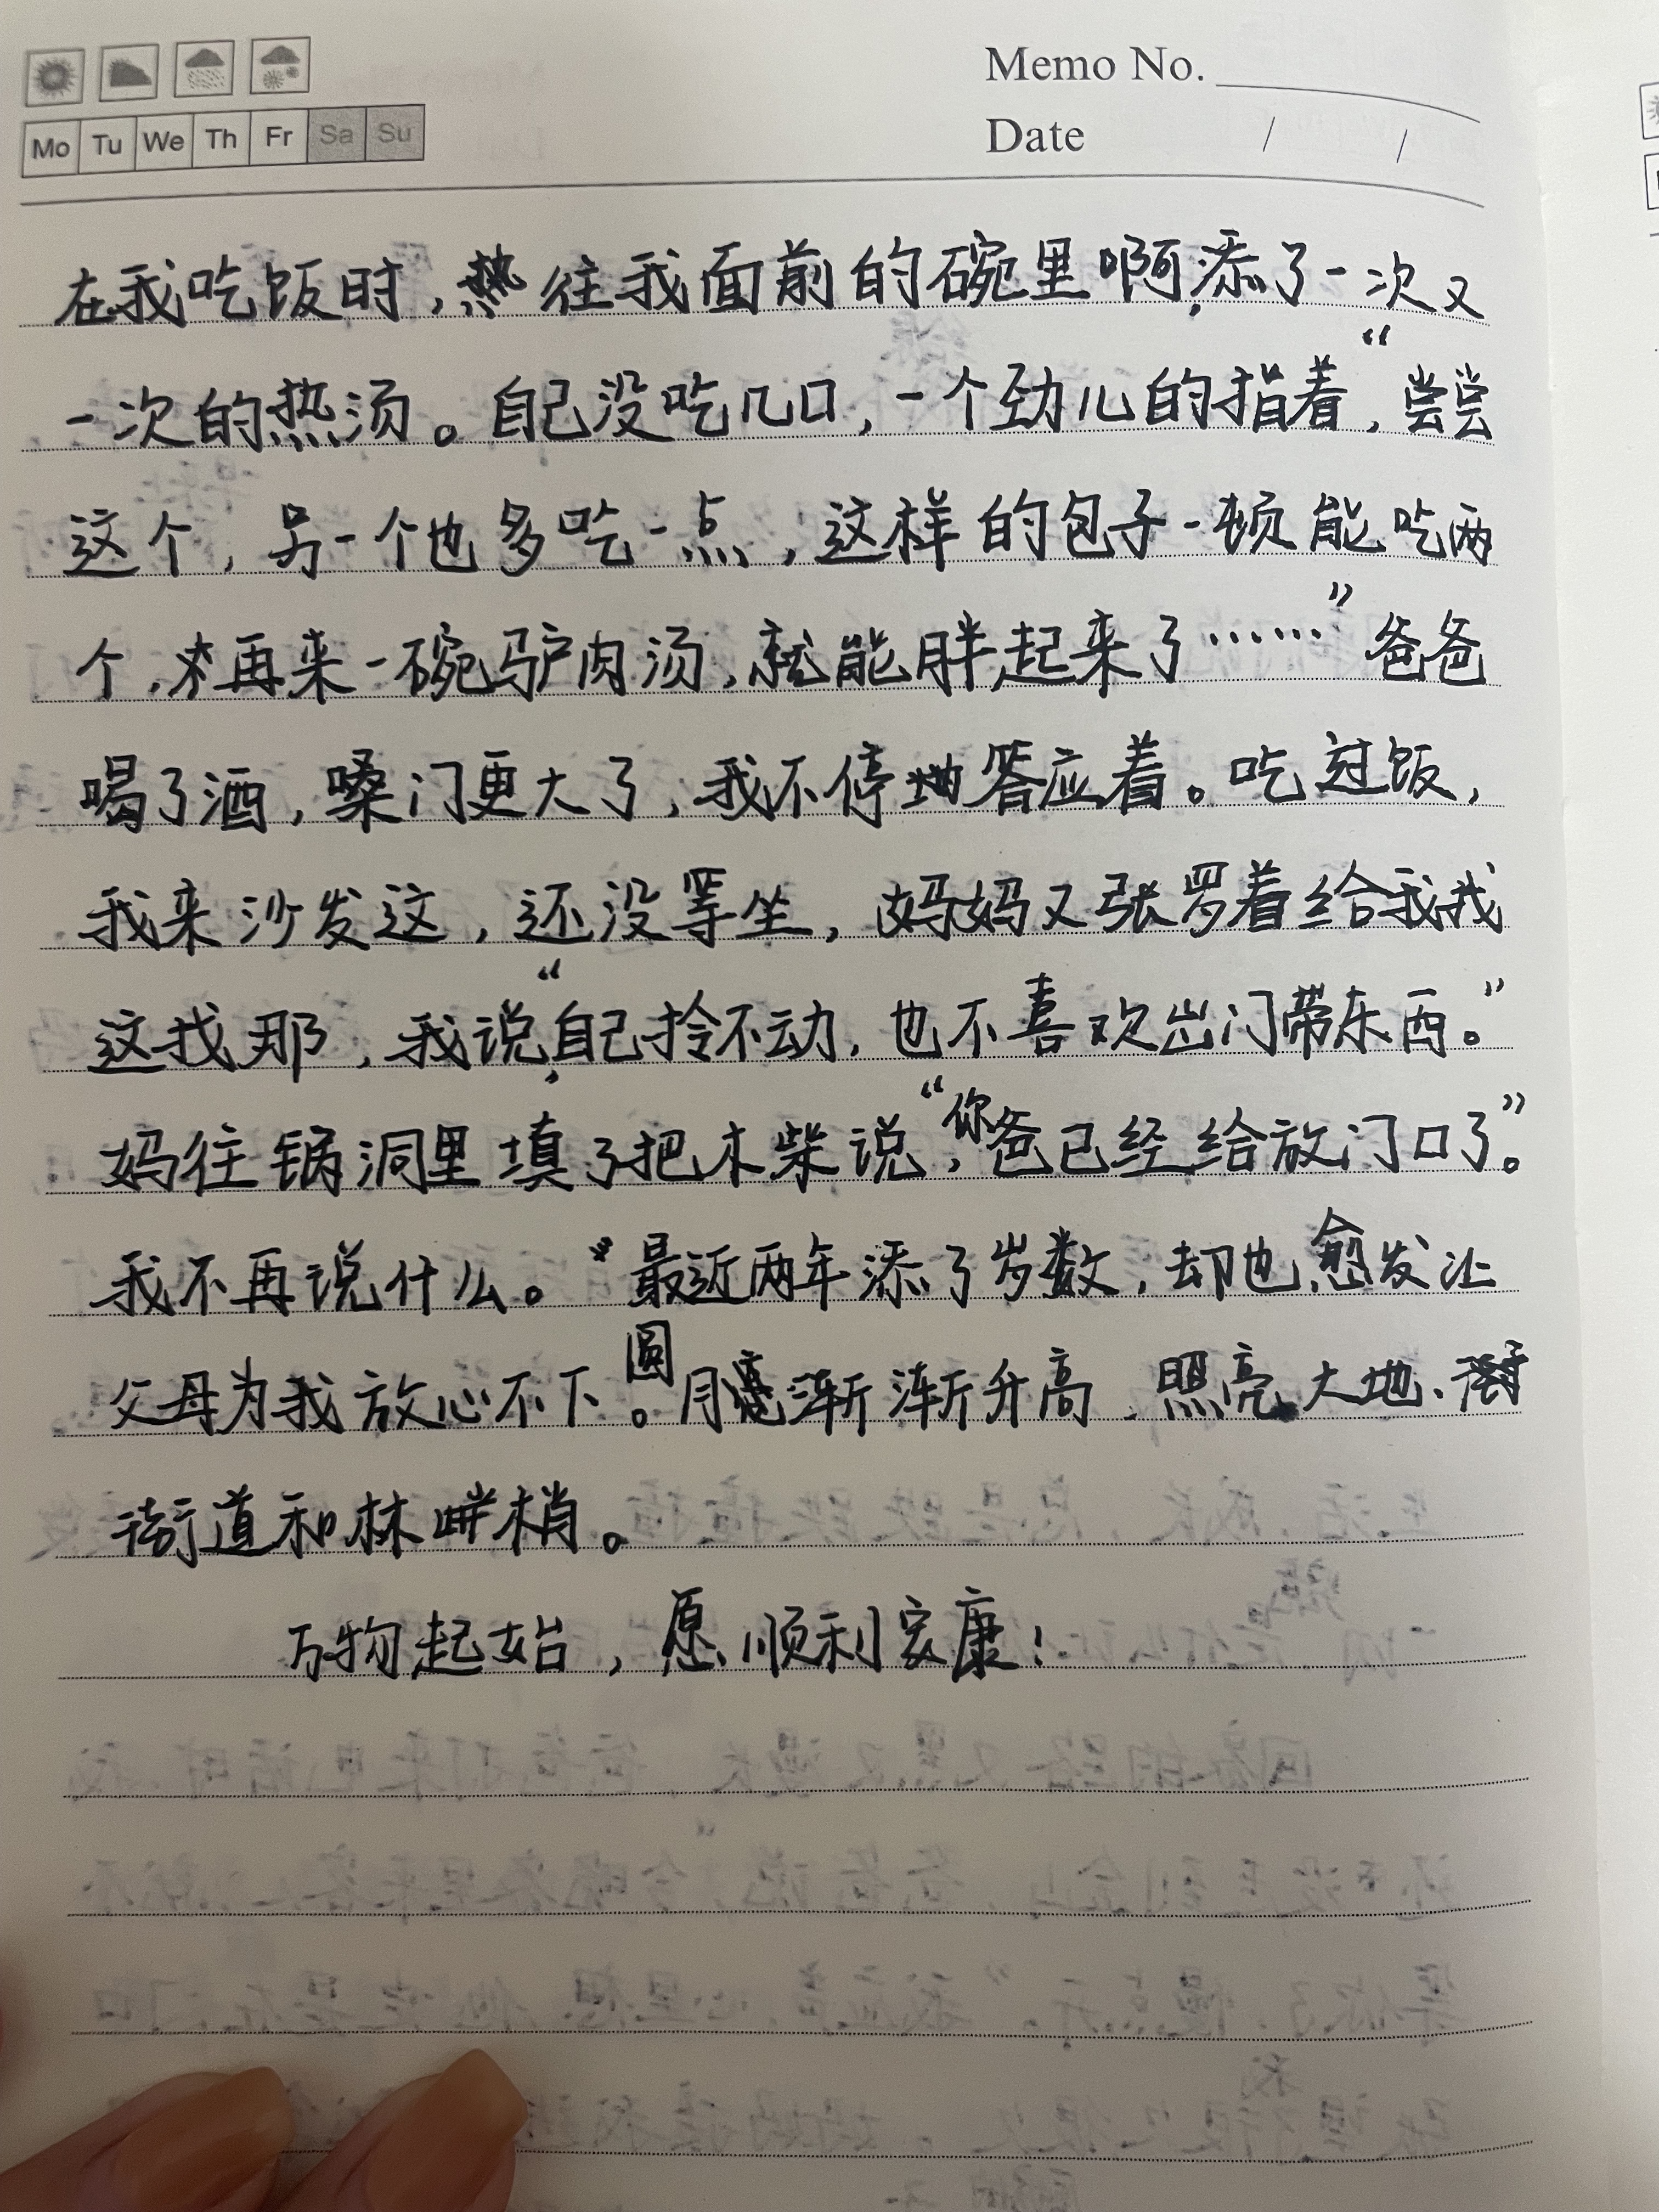 Memo No.
Mo Tu We Th Fr Sa Su
Date / /
在我吃饭时,往我面前的碗里啊,添了一次又
一次的热汤。自己没吃几口,一个劲儿的指着,“尝尝
这个,另一个也多吃一点,这样的包子一顿能吃两
个,再来一碗驴肉汤,就能胖起来了……”爸爸
喝了酒,嗓门更大了,我不停地答应着。吃过饭,
我来沙发这,还没等坐,妈妈又张罗着给我找
这找那,我说,“自己拎不动,也不喜欢出门带东西。”
妈往锅洞里填了把木柴说,“你爸已经给放门口了”。
我不再说什么。最近两年添了岁数,却也愈发让
父母为我放心不下。圆月渐渐升高,照亮大地、
街道和林梢。
万物起始,愿顺利家康!